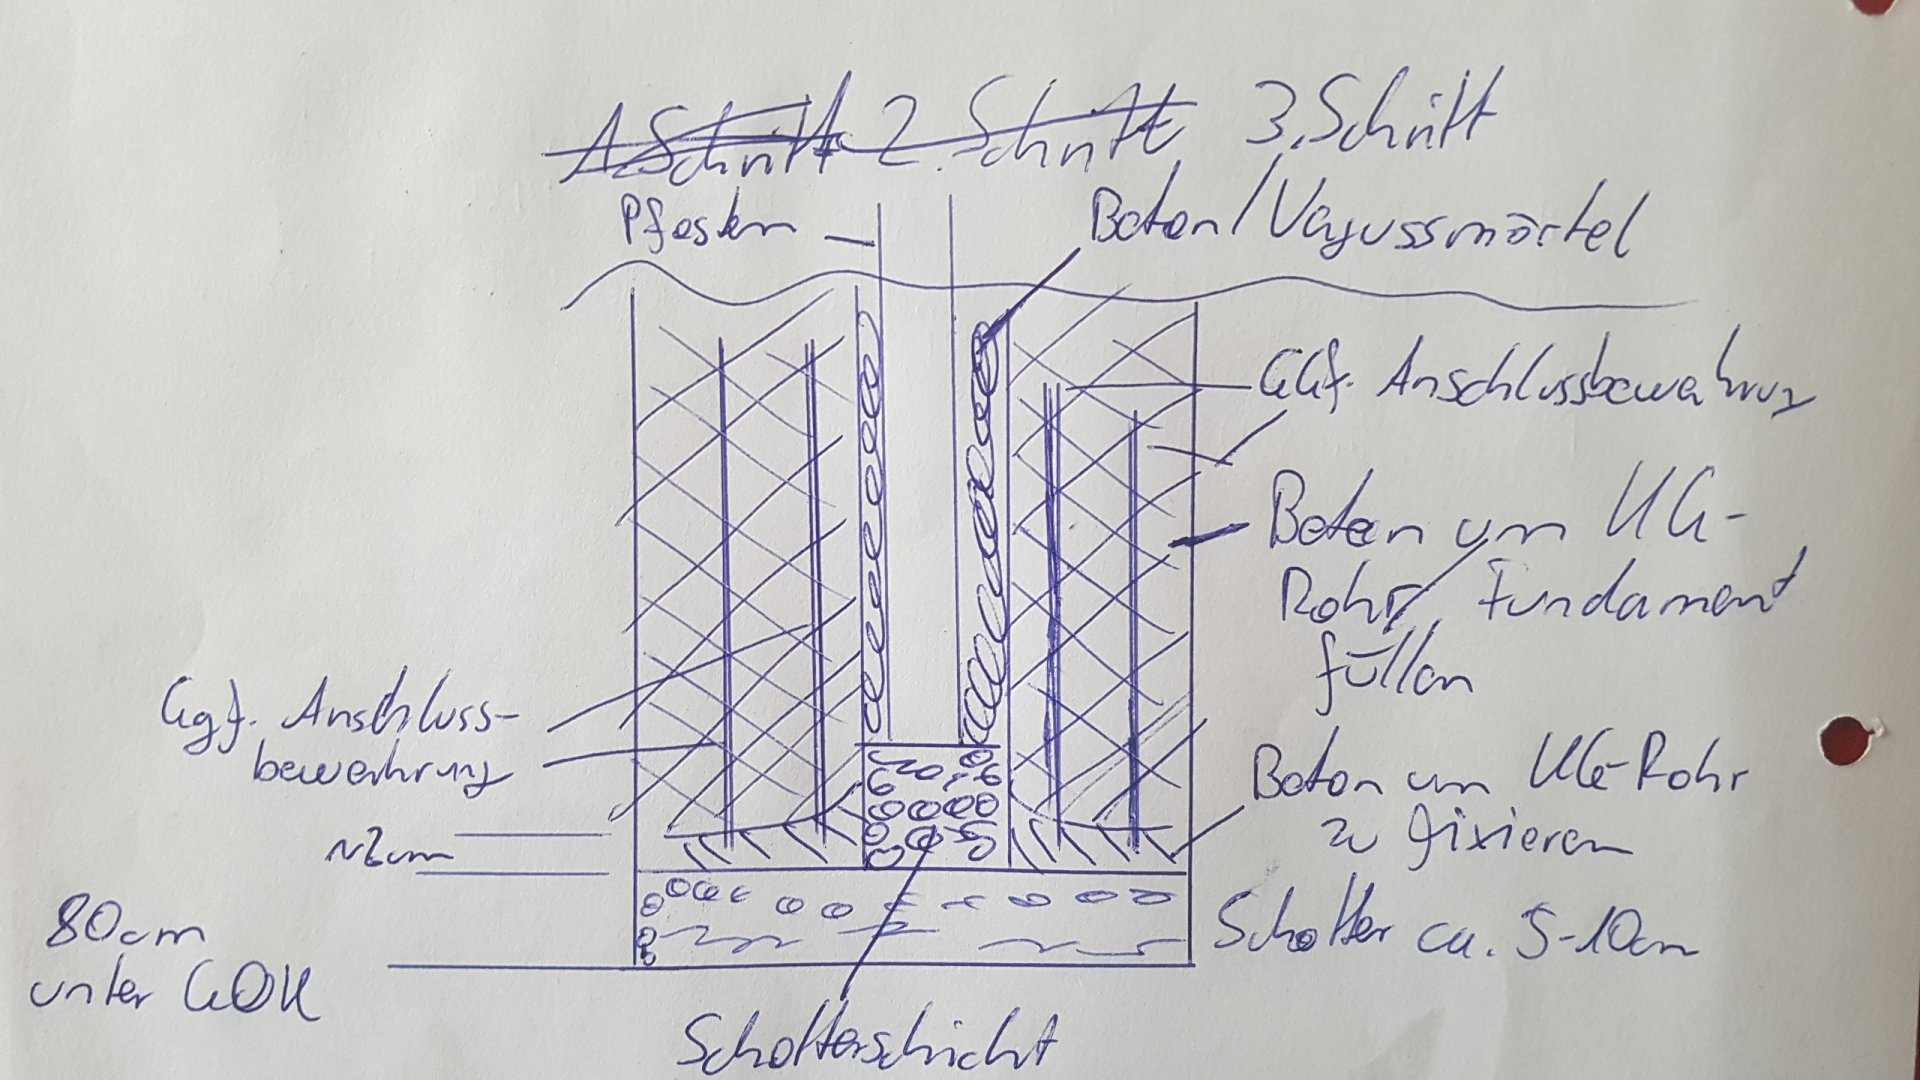 1. Schritt 2. Schritt 3. Schritt
Pfosten
Beton/Vergussmörtel
GGf. Anschlussbewehrung
Beton um KG-
Rohr/Fundament
füllen
Ggf. Anschluss-
bewehrung
Beton um KG-Rohr
zu fixieren
~2cm
80cm
unter GOK
Schotter ca. 5-10cm
Schotterschicht